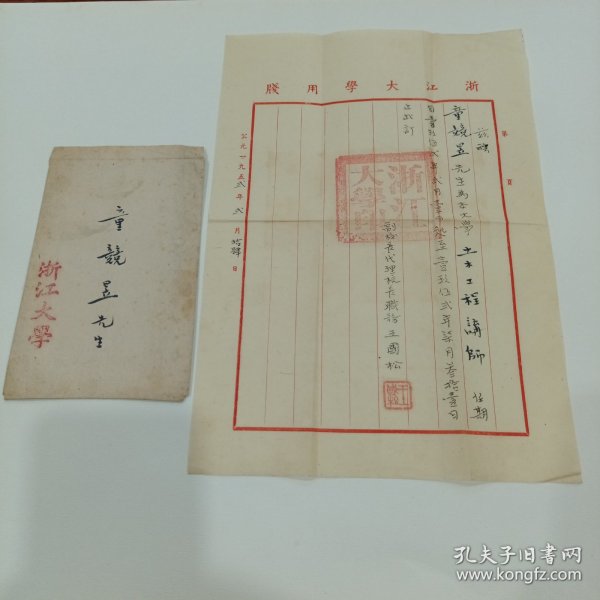 浙江大學用牋
第 頁
茲聘
童競昱先生為本大學 土木工程講師 任期
自壹玖伍貳年貳月壹日起至壹玖伍貳年柒月叁拾壹日
止此訂
副校長代理校長職務王國松
公元一九五貳年貳月 日
浙江大學印
童競昱先生
浙江大學
孔夫子旧书网
www.kongfz.com